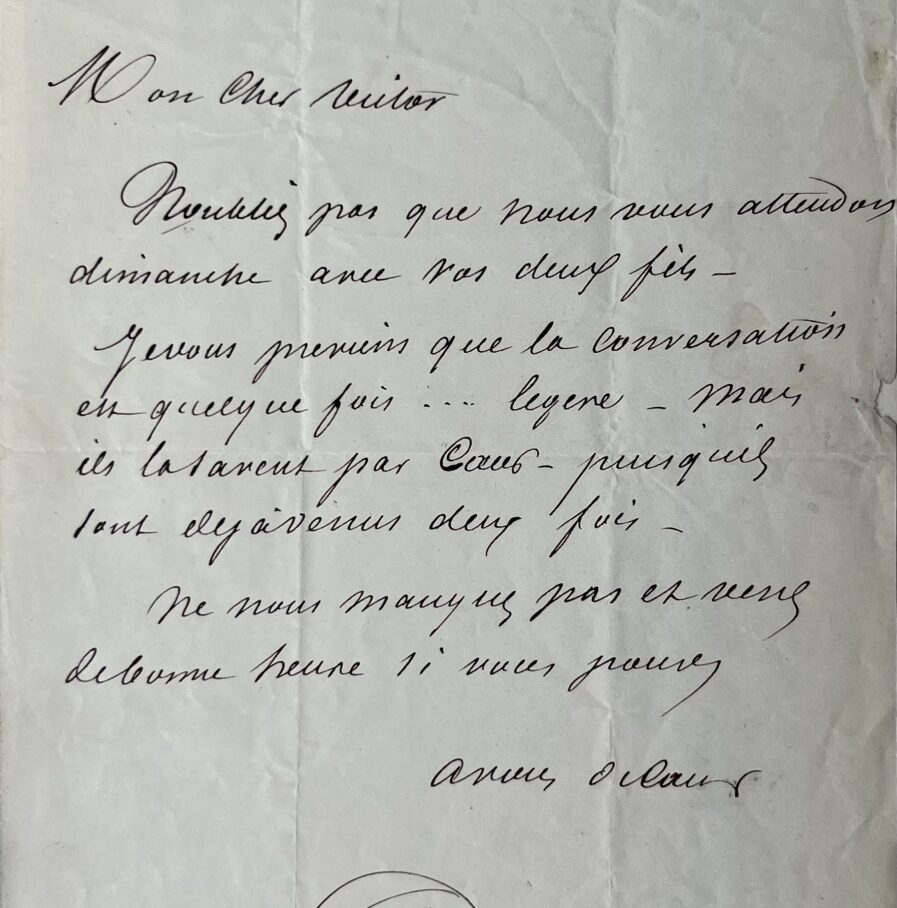 Mon Cher Victor
Noubliez pas que nous vous attendons
dimanche avec vos deux fils –
Je vous previens que la conversation
est quelque fois .... legere – Mais
ils la savent par Cœur – puisquils
sont dejà venus deux fois –
Ne nous manquez pas et venez
de bonne heure si vous pouvez
a vous de Cœur